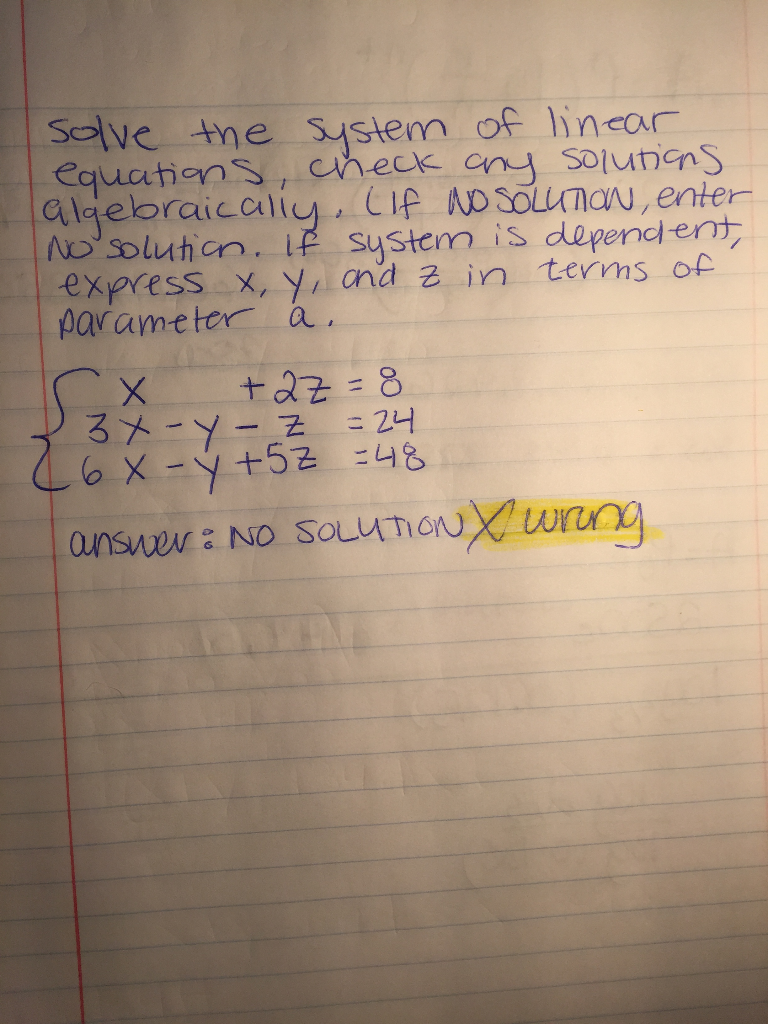 Solve the system of linear
equations, check any solutions
algebraically. (If NO SOLUTION, enter
NO solution. If system is dependent,
express x, y, and z in terms of
parameter a.
{ x + 2z = 8
3x - y - z = 24
6x - y + 5z = 48
answer: NO SOLUTION X wrong